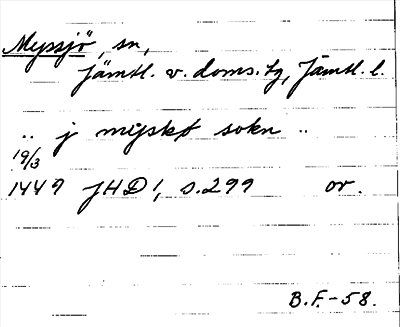 Myssjö, sn,
Jämtl. v. doms. tg, Jämtl. l.
.. j mijskø sokn ..
19/3
1449 JHD 1, s. 299 or.
B.F.-58.